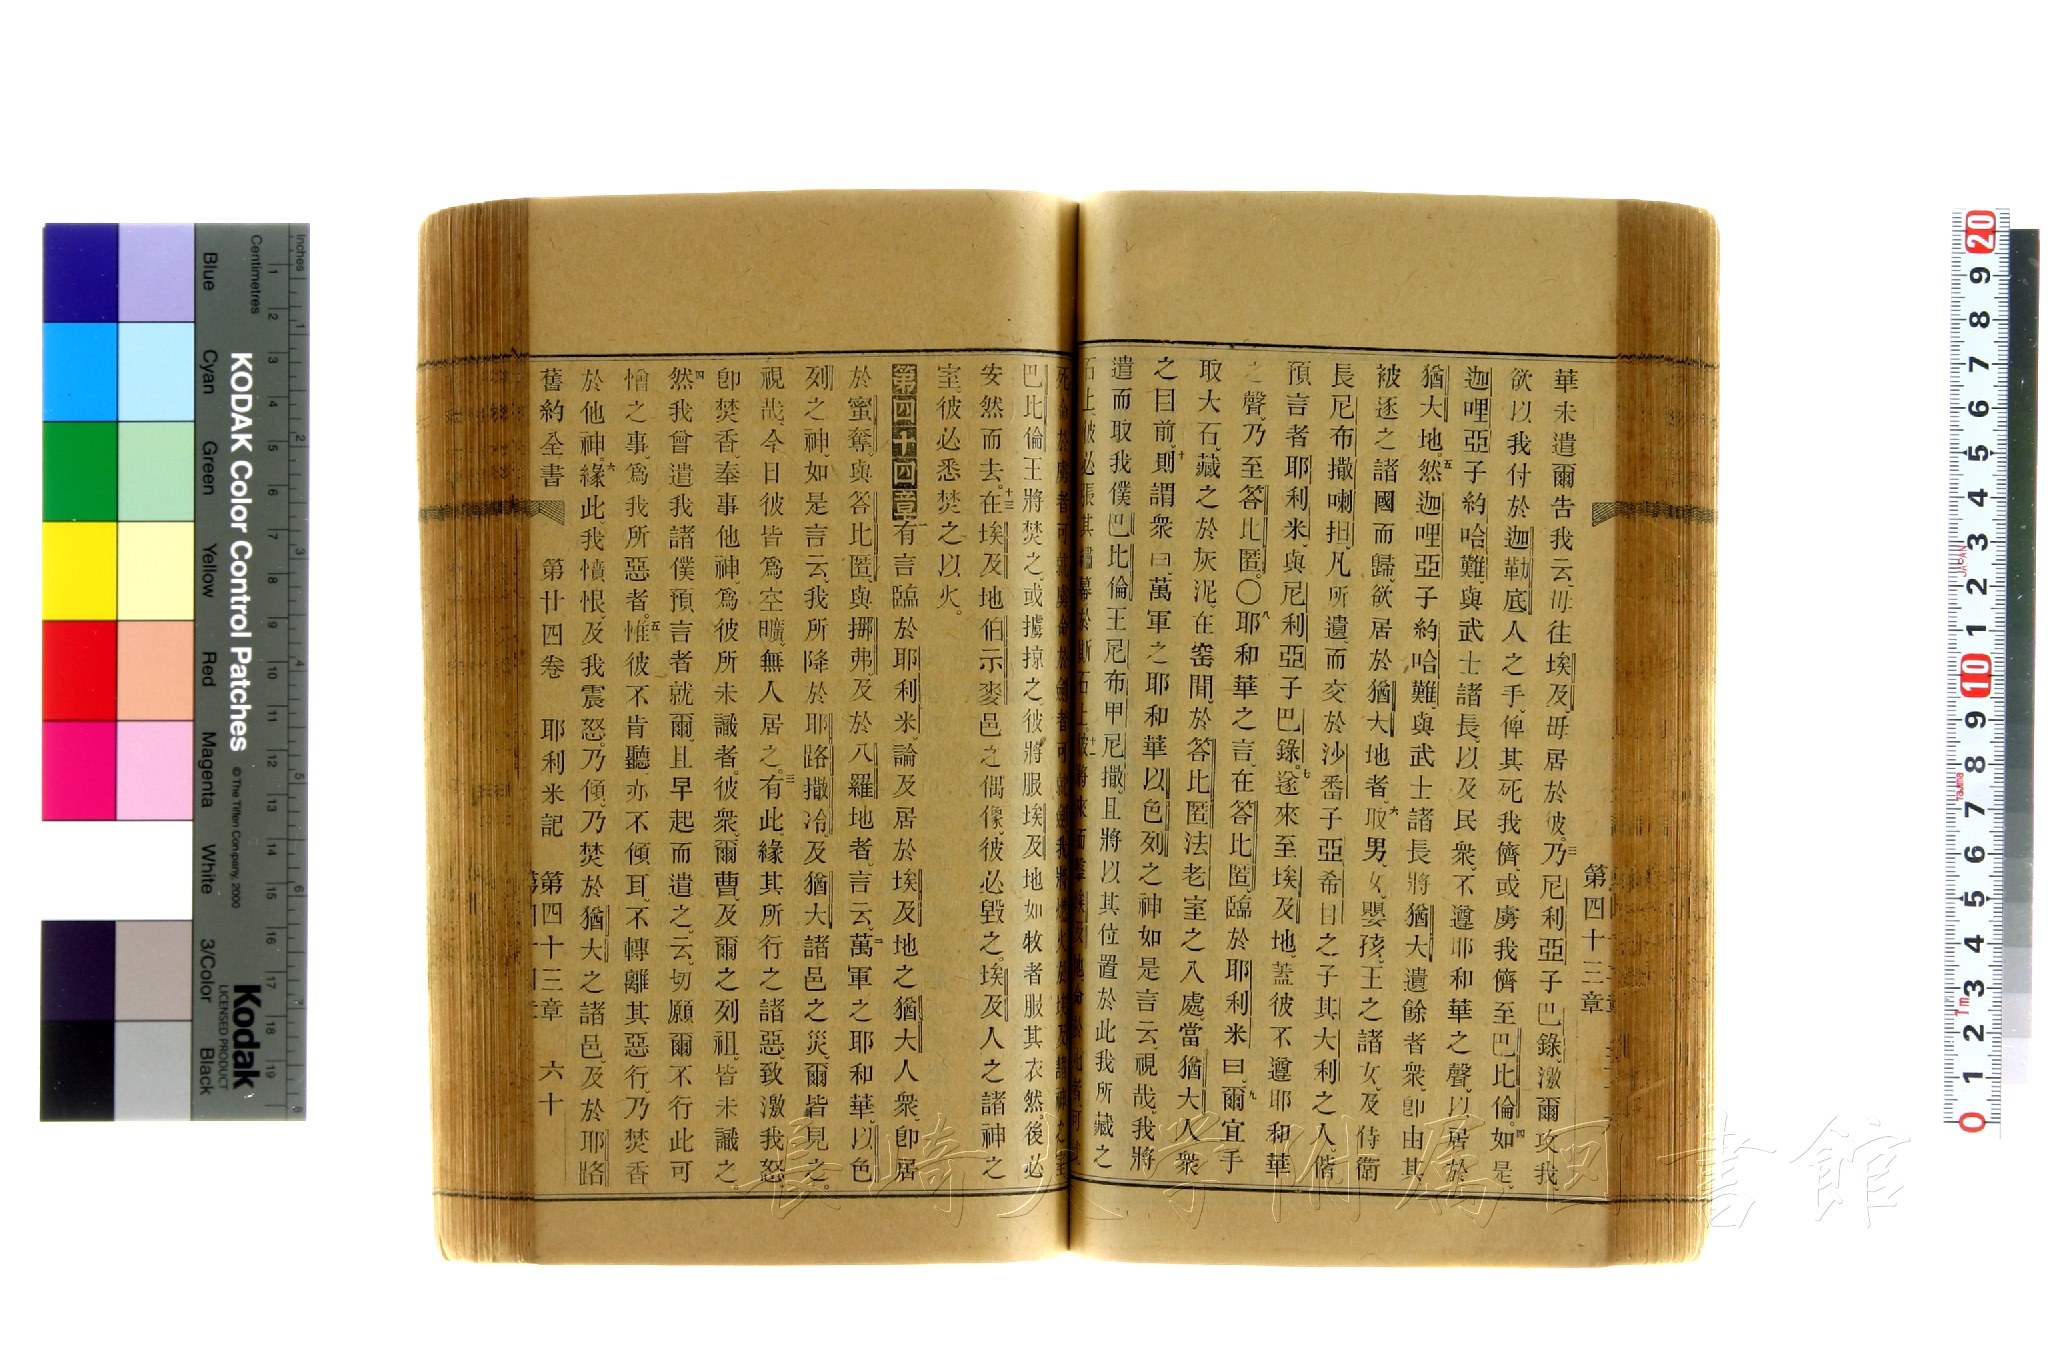 第四十三章
華未遣爾告我云、毋往埃及、毋居於彼、三乃尼利亞子巴錄、激爾攻我、
欲以我付於迦勒底人之手、俾其死我儕、或虜我儕至巴比倫、四如是、
迦哩亞子約哈難、與武士諸長、以及民衆、不遵耶和華之聲、以居於
猶大地。五然迦哩亞子約哈難、與武士諸長將猶大遺餘者衆、卽由其
被逐之諸國而歸、欲居於猶大地者、六取男、女、嬰孩、王之諸女、及侍衞
長尼布撒喇担、凡所遺、而交於沙番子亞希甘之子其大利之人、偕
預言者耶利米、與尼利亞子巴錄。七遂來至埃及地、蓋彼不遵耶和華
之聲、乃至答比匿。〇八耶和華之言、在答比匿、臨於耶利米曰、九爾宜手
取大石、藏之於灰泥、在窰間、於答比匿法老室之入處、當猶大人衆
之目前、十則謂衆曰、萬軍之耶和華以色列之神如是言云、視哉、我將
遣而取我僕巴比倫王尼布甲尼撒、且將以其位置於此我所藏之
石上、彼必張其
巴比倫王將焚之、或擄掠之、彼將服埃及地、如牧者服其衣然、後必
安然而去。十三在埃及地伯示麥邑之偶像、彼必毀之。埃及人之諸神之
室、彼必悉焚之以火。
第四十四章 一有言臨於耶利米、論及居於埃及地之猶大人衆、卽居
於蜜奪、與答比匿、與挪弗、及於八羅地者、言云、二萬軍之耶和華、以色
列之神、如是言云、我所降於耶路撒冷、及猶大諸邑之災、爾皆見之。
視哉、今日彼皆爲空曠、無人居之。三有此緣其所行之諸惡、致激我怒、
卽焚香、奉事他神、爲彼所未識者、彼衆、爾曹、及爾之列祖、皆未識之。
四然我曾遣我諸僕預言者就爾、且早起而遣之、云、切願爾不行此可
憎之事、爲我所惡者。五惟彼不肯聽、亦不傾耳、不轉離其惡行、乃焚香
於他神。六緣此、我憤恨、及我震怒、乃傾、乃焚於猶大之諸邑、及於耶路
舊約全書 第廿四卷 耶利米記 第四十三章 六十
Inches
Centimetres
KODAK Color Control Patches
© The Tiffen Company, 2000
Kodak
LICENSED PRODUCT
Blue Cyan Green Yellow Red Magenta White 3/Color Black
JAPAN
長崎大学附属図書館